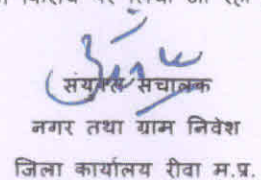 पर
संयुक्त संचालक
नगर तथा ग्राम निवेश
जिला कार्यालय रीवा म.प्र.